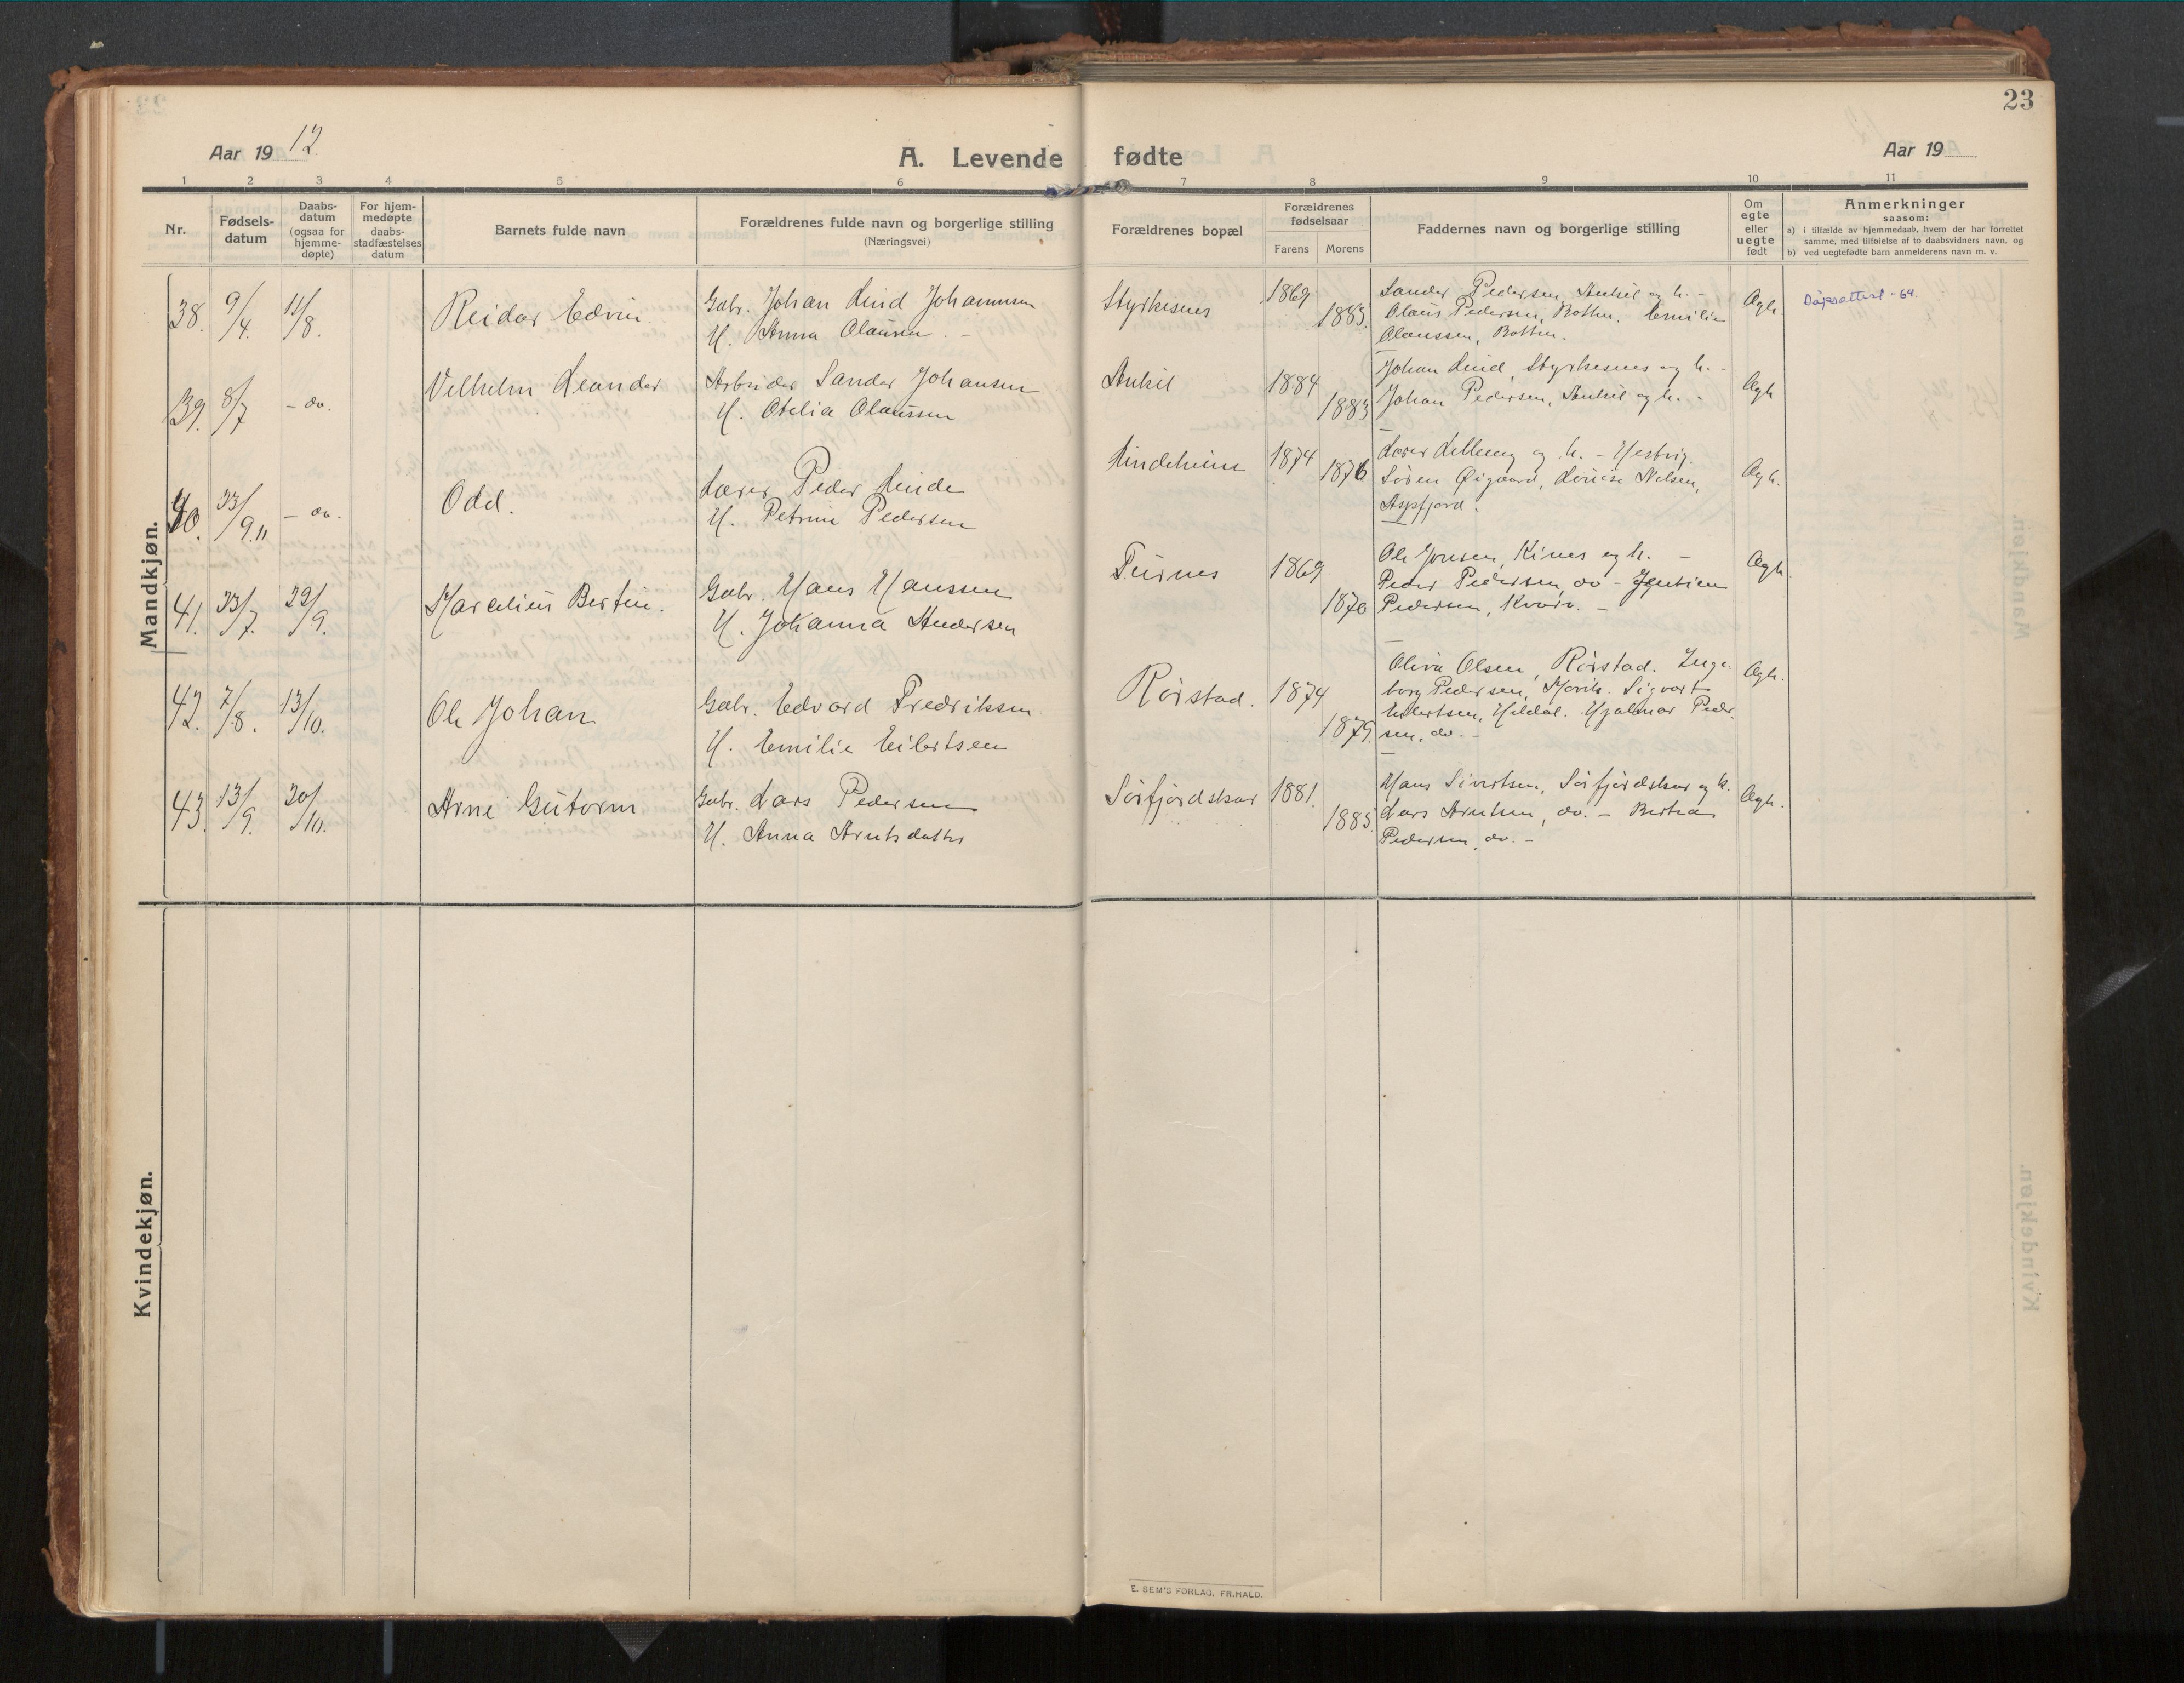 23
Aar 19 12.
A. Levende fødte
Aar 19
1 2 3 4 5 6 7 8 9 10 11
Nr.
Fødsels-
datum
Daabs-
datum
(ogsaa for
hjemme-
døpte)
For hjem-
medøpte
daabs-
stadfæstelses
datum
Barnets fulde navn
Forældrenes fulde navn og borgerlige stilling
(Næringsvei)
Forældrenes bopæl
Forældrenes
fødselsaar
Farens Morens
Faddernes navn og borgerlige stilling
Om
egte
eller
uegte
født
Anmerkninger
saasom:
a) i tilfælde av hjemmedaab, hvem der har forrettet
samme, med tilføielse af to daabsvidners navn, og
b) ved uegtefødte barn anmelderens navn m. v.
Mandkjøn.
38. 9/4. 11/8. Reidar Edvin.
Gabr. Johan Lind Johannesen
H. Anna Olausen. -
Styrkesnes 1869 1883.
Sander Pedersen, Ankil og h. -
Olaus Pedersen, Botten. Emilie
Olaussen, Botten.
Ægh.
Dåpsattest -64.
39. 8/7 - do. Vilhelm Leander
Arbeider Sander Johansen
H. Otelia Olaussen
Ankil 1884 1883
Johan Lind, Styrkesnes og h. -
Johan Pedersen, Ankil og h. -
Ægh
40. 23/9.11 - do. Odd.
Lærer Peder Linde
H. Petrine Pedersen
Lindeheim 1874 1876
Lærer Lilleeng og h. -
Søren Øigaard, Lovise Nilsen,
Aspfjord.
Ægh.
41. 23/7. 29/9. Marcelius Bertin.
Gabr. Hans Hanssen
H. Johanna Andersen
Furnes 1869 1870
Ole Jonsen, Kines og h. -
Peder Pedersen, do - Jentine
Pedersen, Kvarv. -
Ægh.
42. 7/8. 13/10. Ole Johan
Gabr. Edvard Fredriksen
H. Emilie Eilertsen
Rørstad. 1874 1879.
Oliva Olsen, Rørstad. Inge-
borg Pedersen, Movik. Sigvart
Eilertsen, Hildal. Hjalmar Peder-
sen, do. -
Ægh.
43. 13/9. 20/10. Arne Gutorm
Gabr. Lars Pedersen
H. Anna Arntsdatter
Sørfjordskar 1881. 1885.
Hans Sivertsen, Sørfjordskar og h.
Lars Arntsen, do. - Bertea
Pedersen, do. -
Ægh.
Kvindekjøn.
E. SEM'S FORLAG, FR.HALD.